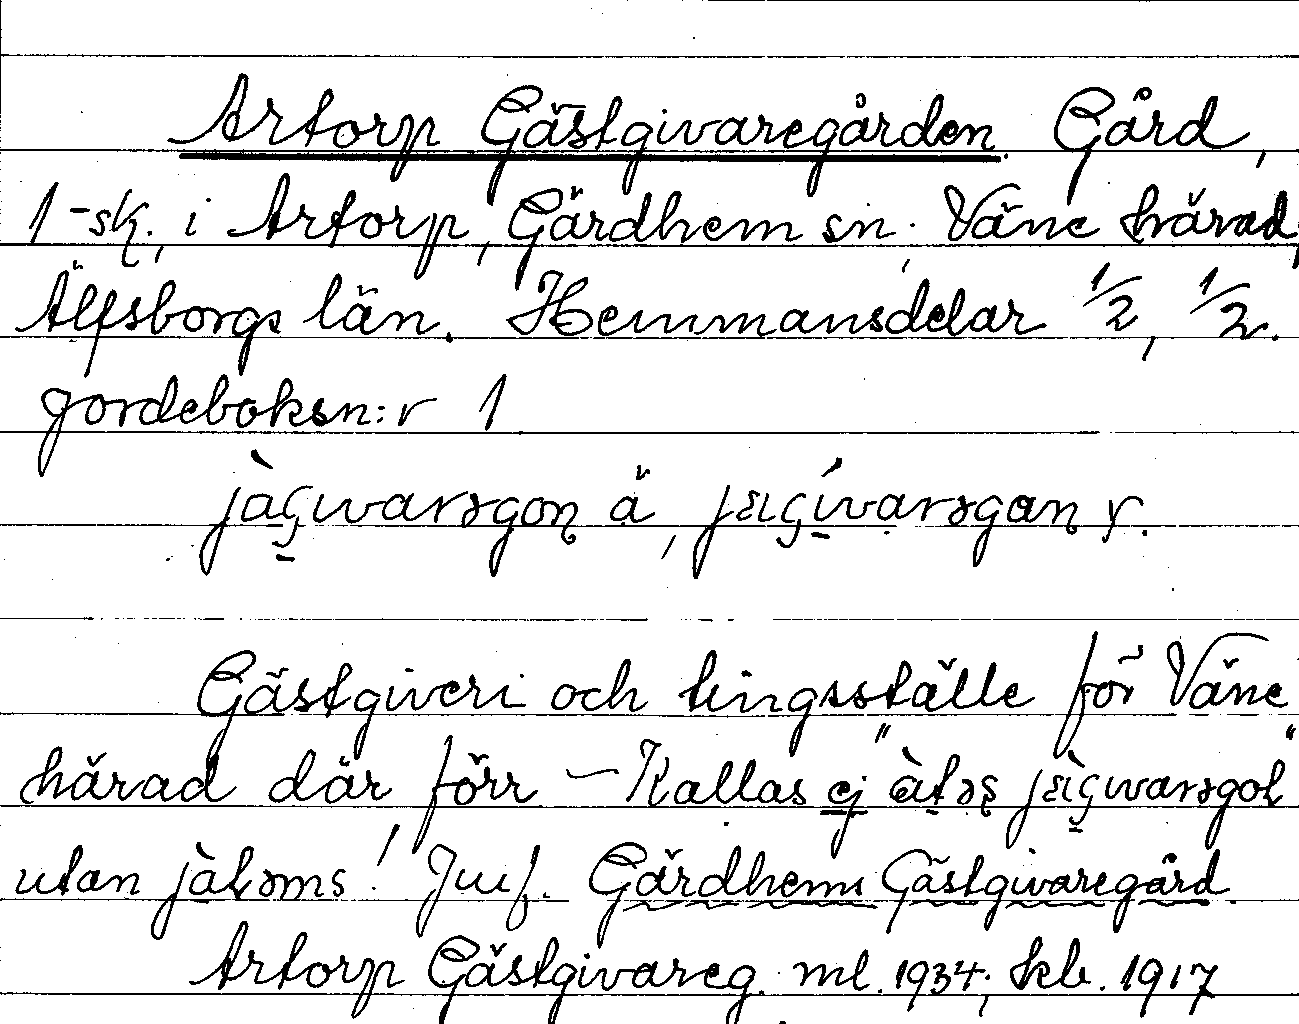 Artorp Gästgivaregården. Gård,
1-sk., i Artorp, Gärdhem sn. Väne härad,
Älfsborgs län. Hemmansdelar 1/2, 1/2.
Jordeboksn:r 1
jàçıvarəgoɳ ä,
Gästgiveri och tingsställe för Väne
härad där förr – Kallas ej
utan jàtəms! Jmf. Gärdhems Gästgivaregård.
Artorp Gästgivareg. ml. 1934; kb. 1917